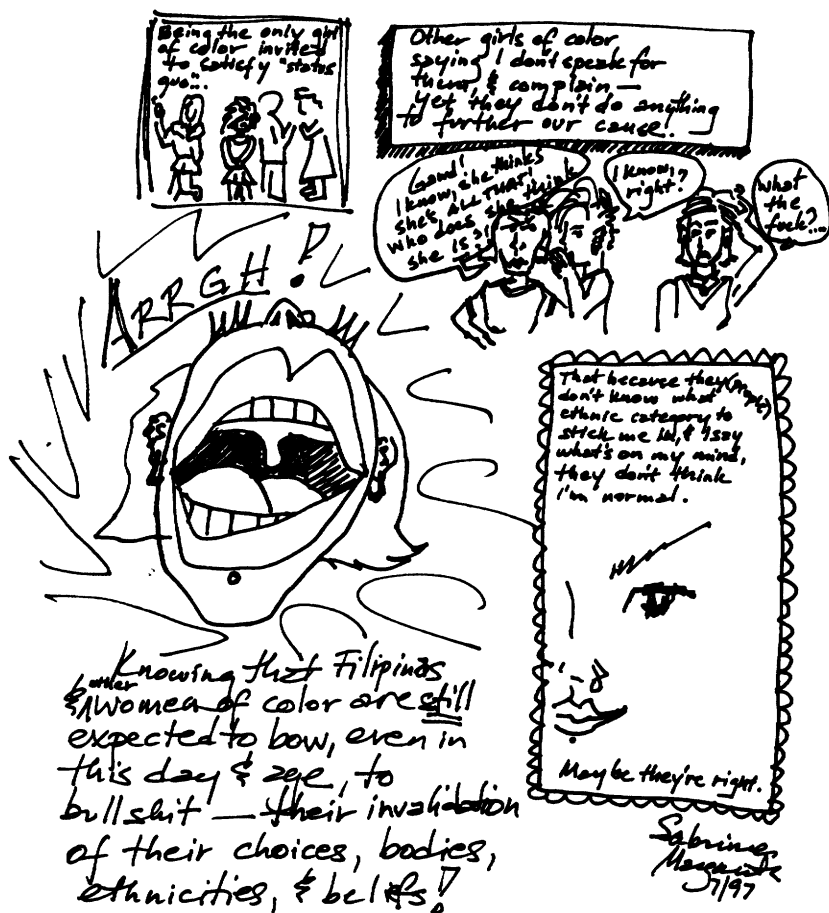 Being the only girl
of color invited
to satisfy "status
quo"...
Other girls of color
saying I don't speak for
them, & complain —
yet they don't do anything
to further our cause.
Gawd!
I know, she thinks
she's ALL THAT!
who does she think
she is?!
I know,
right?
what
the
fuck?...
ARRGH!
That because they (ppl)
don't know what
ethnic category to
stick me in, & I say
what's on my mind,
they don't think
i'm normal.
Maybe they're right.
Knowing that Filipinas
& other women of color are still
expected to bow, even in
this day & age, to
bullshit — their invalidation
of their choices, bodies,
ethnicities, & beliefs!
Sabrina
7/97